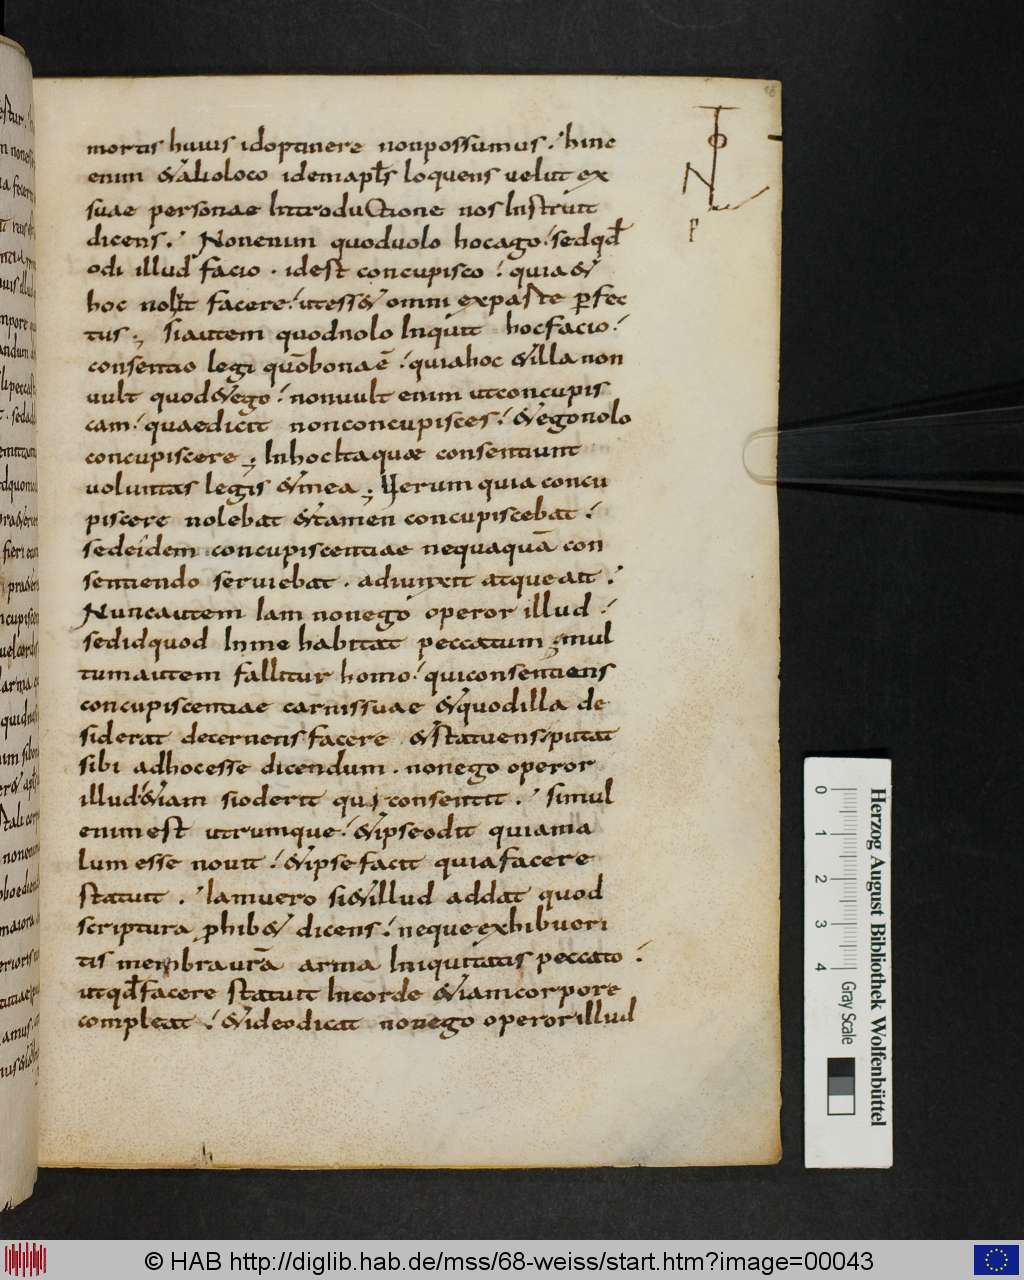 mortis huius id optinere non possumus. hinc
enim & alio loco idem apłs loquens velut ex
suae personae introductione nos instruit
dicens. Non enim quod volo hoc ago. sed qđ
odi illud facio. id est concupisco. quia &
hoc nolit facere. ut ess& omni ex parte perfec
tus. si autem quod nolo inquit hoc facio.
consentio legi quō bona ē. quia hoc & illa non
vult quod & ego. non vult enim ut concupis
cam. quae dicit non concupisces. & ego nolo
concupiscere. In hoc itaque consentiunt
voluntas legis & mea. Verum quia concu
piscere nolebat & tamen concupiscebat.
sed eidem concupiscentiae nequaquā con
sentiendo serviebat. adiunxit atque ait.
Nunc autem iam non ego operor illud.
sed id quod in me habitat peccatum. mul
tum autem fallitur homo. qui consentiens
concupiscentiae carnis suae & quod illa de
siderat decernens facere & statuens putat
sibi adhoc esse dicendum. non ego operor
illud & iam si oderit qui consentit. simul
enim est utrumque. & ipse odit quia ma
lum esse novit. & ipse facit quia facere
statuit. Iam vero si & illud addat quod
scriptura ꝓhib& dicens. neque exhibueri
tis membra urā arma iniquitatis peccato.
ut qđ facere statuit in corde & iam corpore
compleat. & ideo dicat non ego operor illud
Herzog August Bibliothek Wolfenbüttel
0 1 2 3 4 Gray Scale
© HAB http://diglib.hab.de/mss/68-weiss/start.htm?image=00043